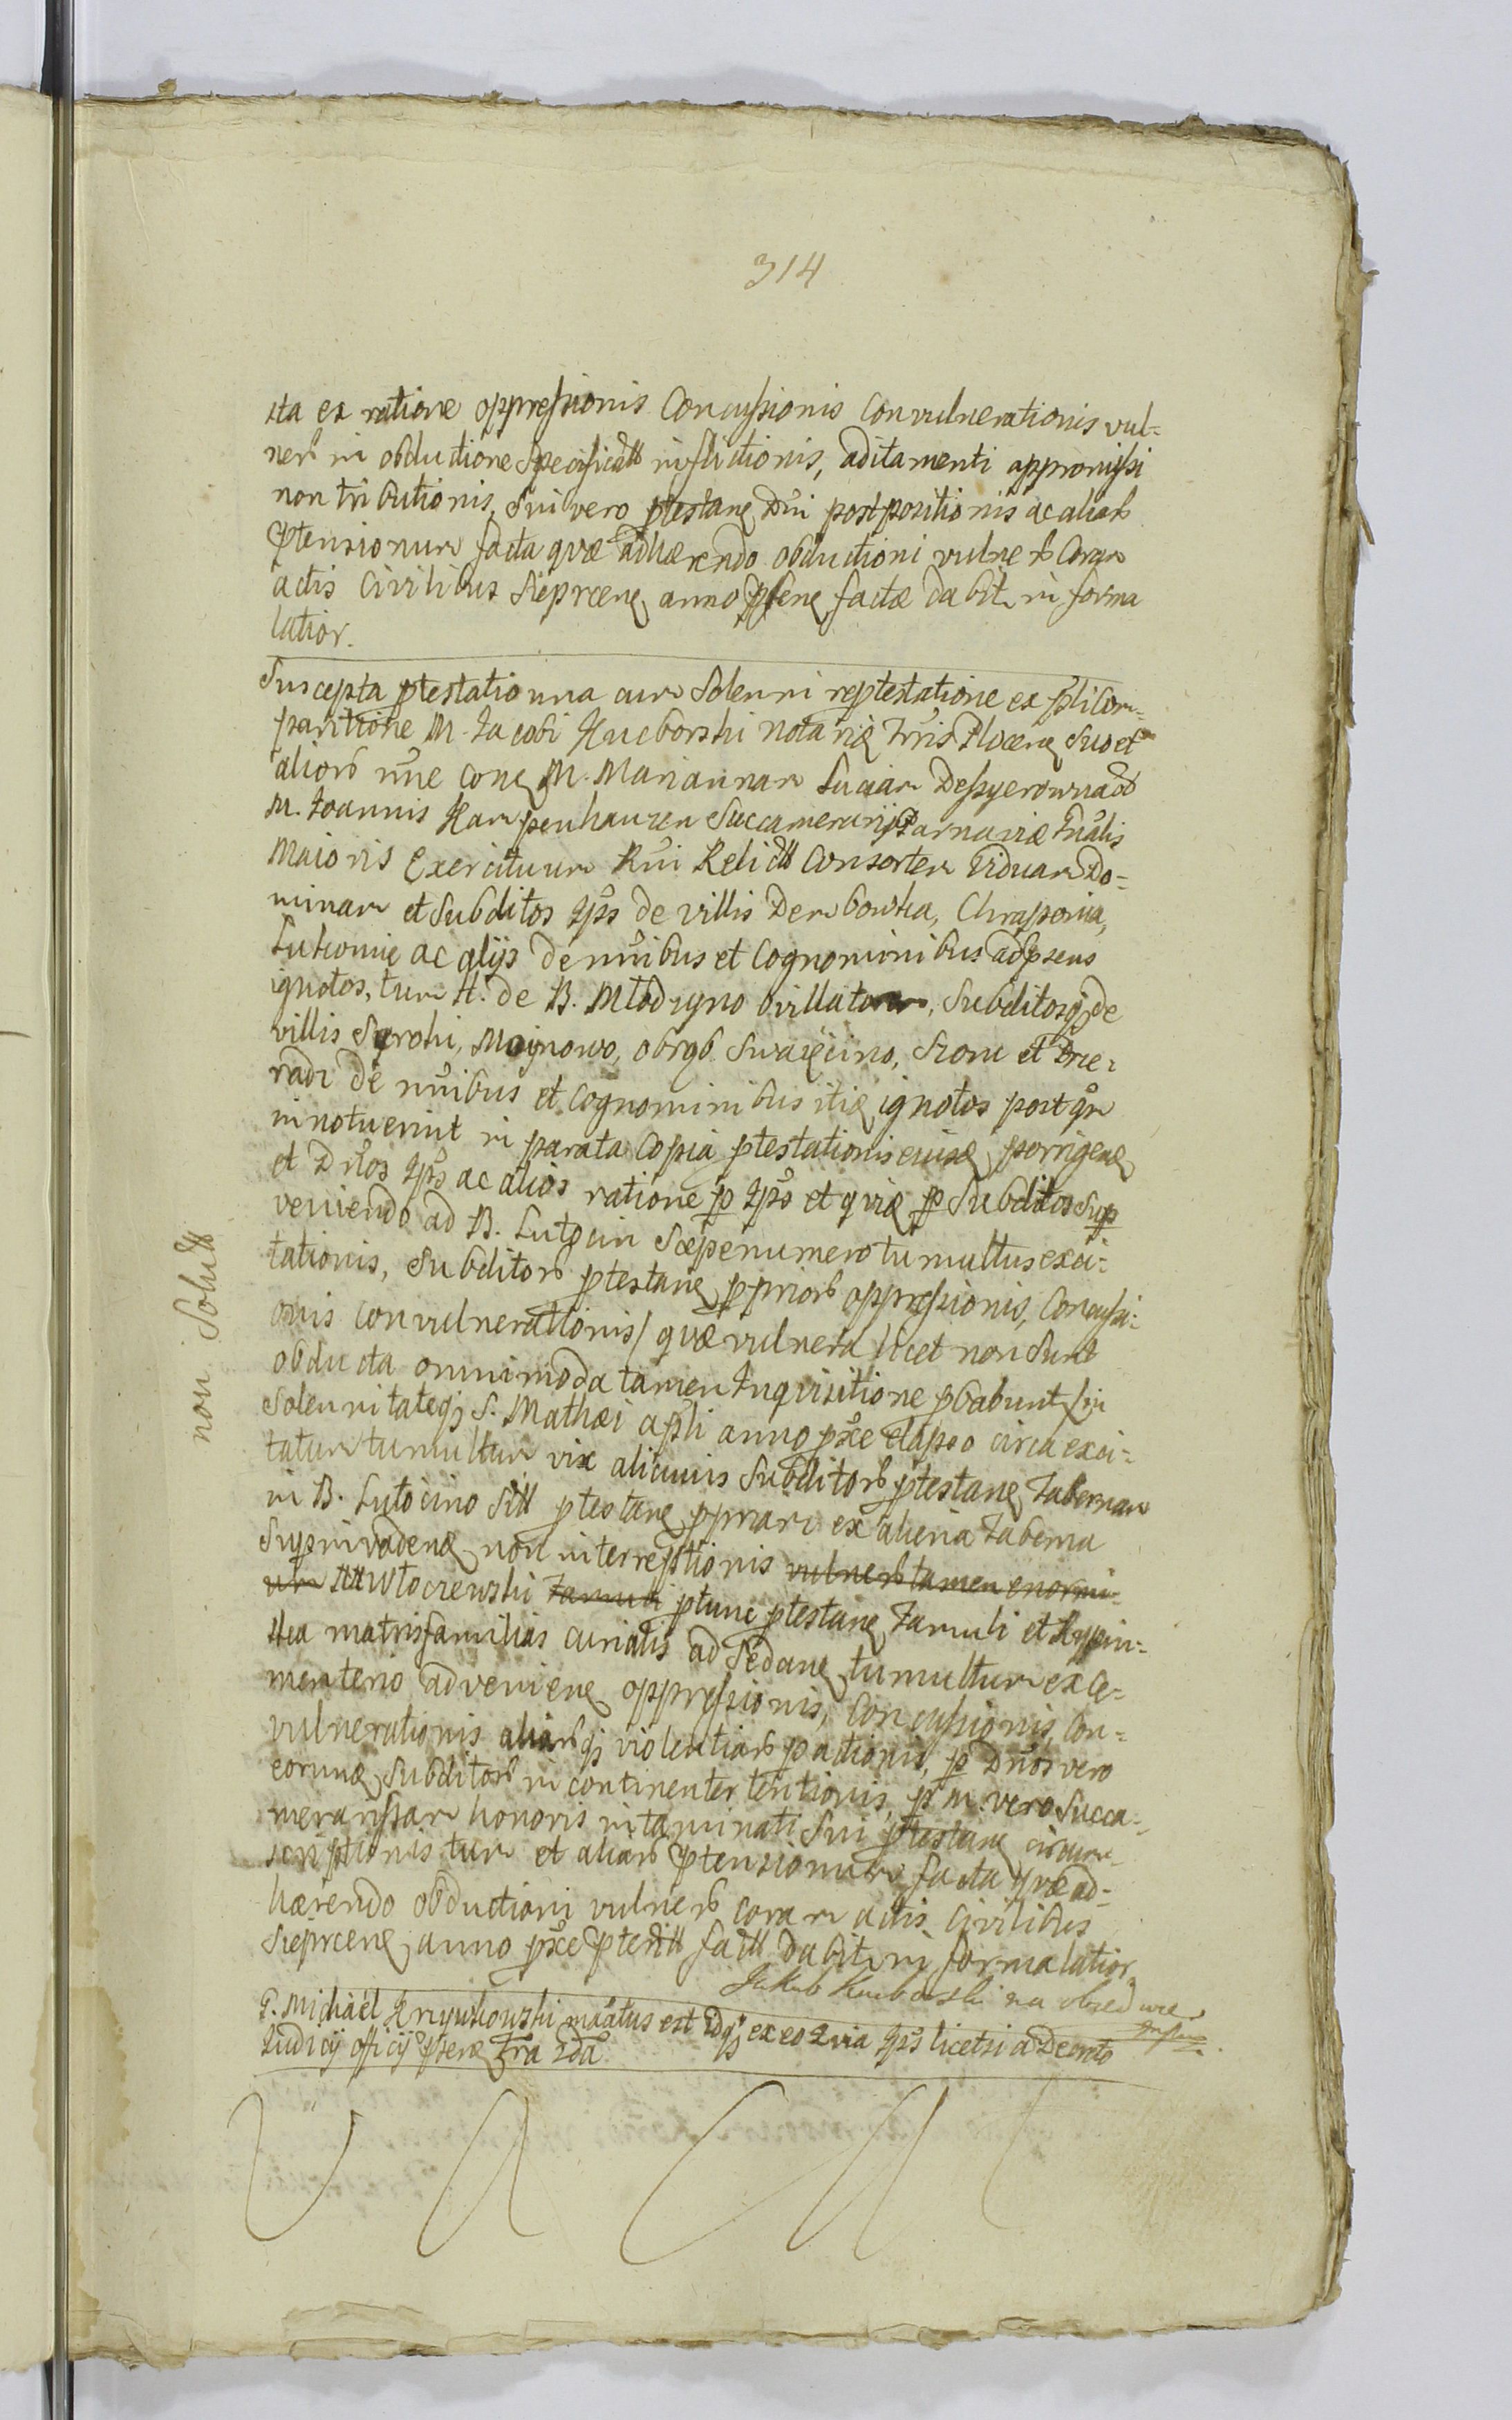 314
sta ex ratione oppressionis Concussionis convulnerationis vul=
ner in obductione Specificatt inflictionis, aditamenti appromissi
non tributionis, Sui vero ptestane Dni postpositionis ac aliar
ptensionum facta quæ adhærendo obductioni vulner Coram
actis Civilibus Sieprcene anno psene factæ dabit in forma
latior.
Suscepta ptestatio una cum Solenni reptestatione ex psli Com=
paritione M. Jacobi Kucborski notarie Trris Plocene Suo et
alior nne cone M. Mariannam Luciam Dessyerowna
M. Joannis Kampenhauzen Succamerarij Parnaviæ Gnalis
Maioris Exercituum Rni Relictt Consortem Viduam Do=
minam et Subditos Jps de villis Dembowka, Chraponia,
Lutiomie ac alijs de nnibus et Cognominibus ad psens
ignotos, tum H. de B. Młodzyno villatorum, Subditosq de
villis Syroki, Mojnowo, obrąb Swaięcino, Sioni et Brie=
radz de nnibus et cognominibus itie ignotos postqm
innotuerint in parata Copia ptestationis eiusd porrigend
et Dnos Jps ac alios ratione p Jps et quia p Subditos Sup
veniendo ad B. Lutocin Sæpenumero tumultus exci=
tationis, Subditor ptestane pprior oppressionis, Concussi=
onis convulnerationis / quæ vulnera licet non Sunt
obducta omnimoda tamen Inquisitione pbabunt / in
Solennitateq S. Mathæi apli anno pxe elapso circa exci=
tatum tumultum vix alicuius Subditor ptestane Tabernam
in B. Lutocino Sitt ptestane ppriam ex aliena Taberna
Supinvadend non interreptionis vulner tamen enormi=
um Wtoczewski Famuli ptunc ptestane Famuli et
matrisfamilias curialis ad Sedane tumultum ex Ce=
menterio adveniene oppressionis, Concussionis, Con=
vulnerationis aliarq violentiar pactionis, p Dnos vero
eorund Subditor in continenter tentionis, p M. vero Succa=
merarissam honoris intaminati Sui ptestane circum=
scriptionis tum et aliar ptensionum facta quæ ad=
hærendo obductioni vulner coram actis Civilibus
Sieprcene anno pxe pteritt factt dabit in forma latior
Jakub Kucborski na obzedwie
G. Michael Krzyzkowski maatus est idq ex eo Quia Jps licet si a Decreto
Judicij officij psene
non Solutt